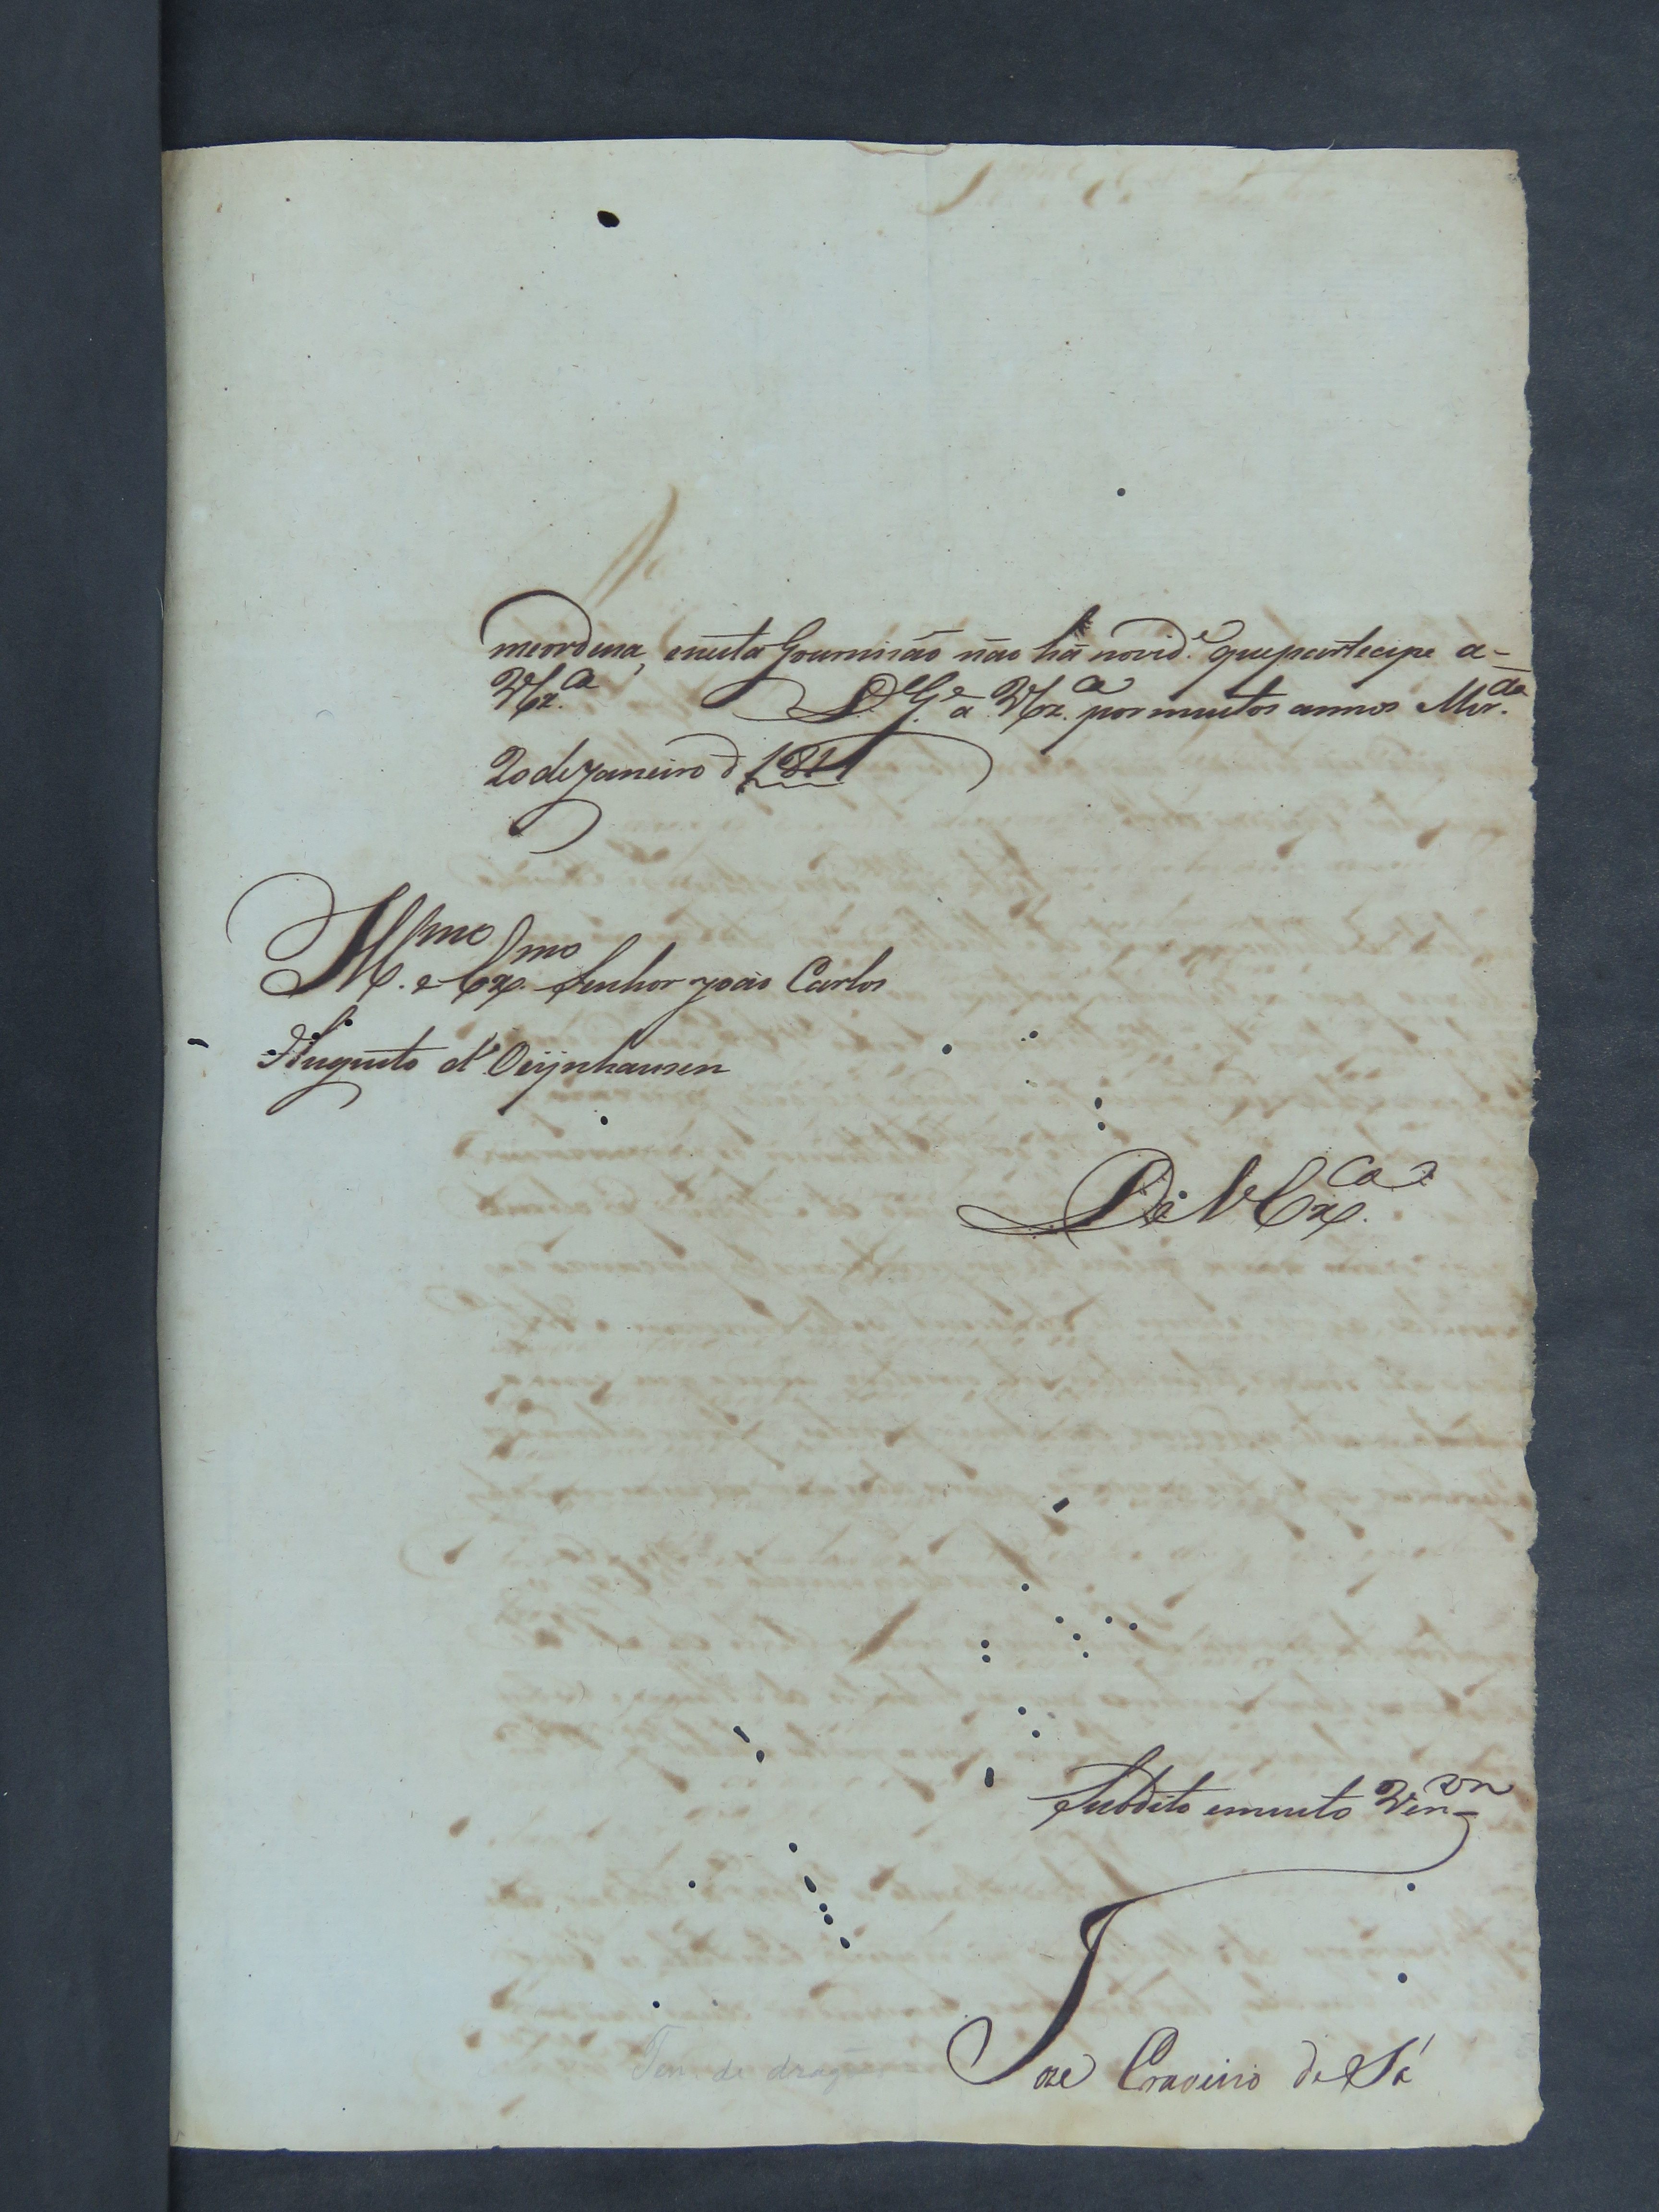 me ordena, enesta Gournisão não há novid.e que partecipe a-
V Ex.ca D.s G.e a V Ex.ca por muitos annos Mir.da
20 de janeiro d 1811
Ill.mo e Ex.mo Senhor joão Carlos
Augusto d' Oeijnhausen
De V Ex.ca
Subdito emuito Ven.or
Joze Craveiro de Sá
Ten. de dragões